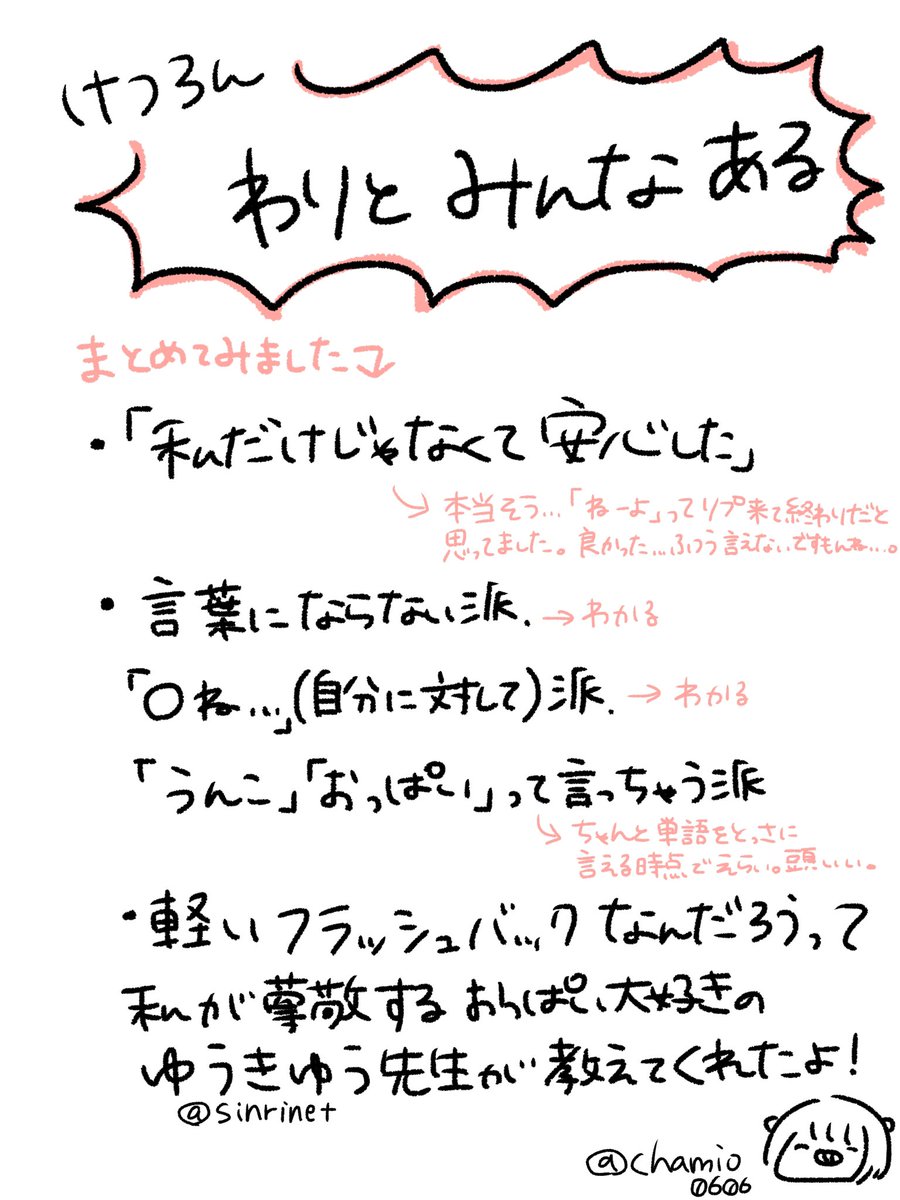 けつろん
わりと みんな ある
まとめてみました
・「私だけじゃなくて 安心した」
本当そう…「ねーよ」ってリプ来て終わりだと
思ってました。良かった…ふつう言えないですもんね…。
・言葉にならない派. →わかる
「〇ね…」(自分に対して)派. →わかる
「うんこ」「おっぱい」って言っちゃう派
ちゃんと単語をとっさに
言える時点でえらい。頭いい。
・軽いフラッシュバックなんだろうって
私が尊敬する おっぱい大好きの
ゆうきゆう先生が教えてくれたよ!
@sinrinet
@chamio
0606